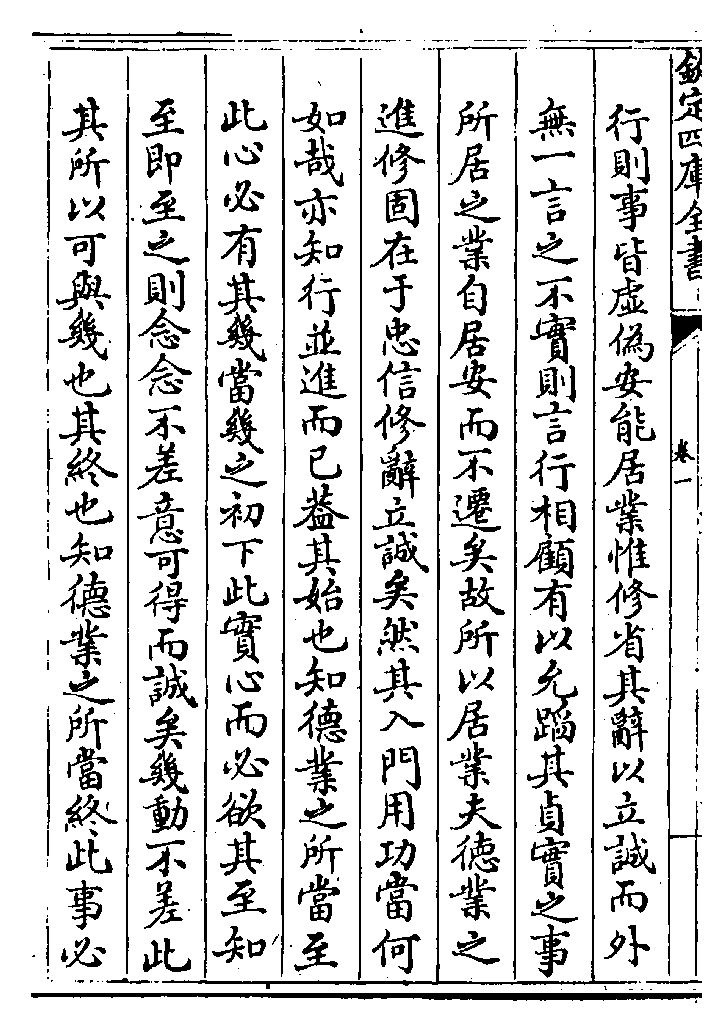 欽定四庫全書
卷一
行則事皆虛偽安能居業惟修省其辭以立誠而外
無一言之不實則言行相顧有以允蹈其貞實之事
所居之業自居安而不遷矣故所以居業夫德業之
進修固在于忠信修辭立誠矣然其入門用功當何
如哉亦知行並進而已葢其始也知德業之所當至
此心必有其幾當幾之初下此實心而必欲其至知
至即至之則念念不差意可得而誠矣幾動不差此
其所以可與幾也其終也知德業之所當終此事必